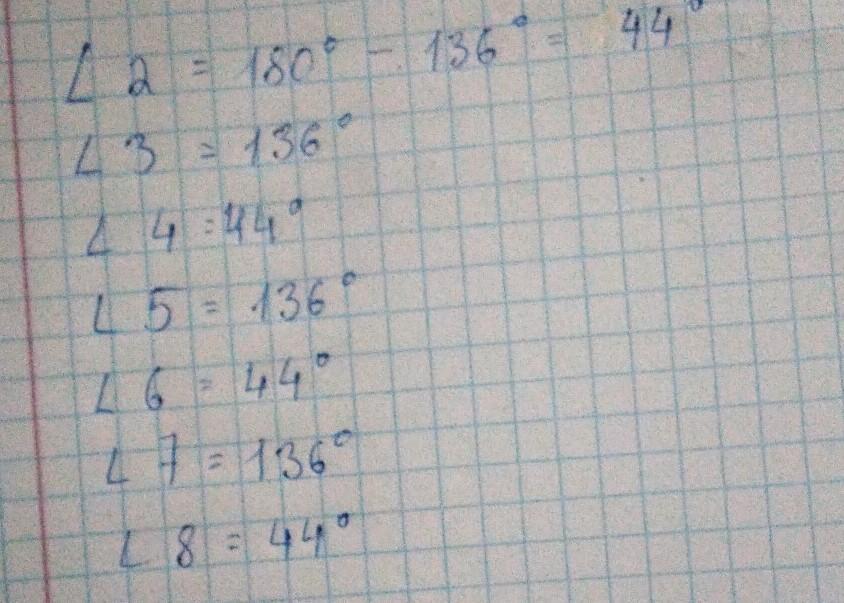 ∠ 2 = 180° - 136° = 44°
∠ 3 = 136°
∠ 4 = 44°
∠ 5 = 136°
∠ 6 = 44°
∠ 7 = 136°
∠ 8 = 44°